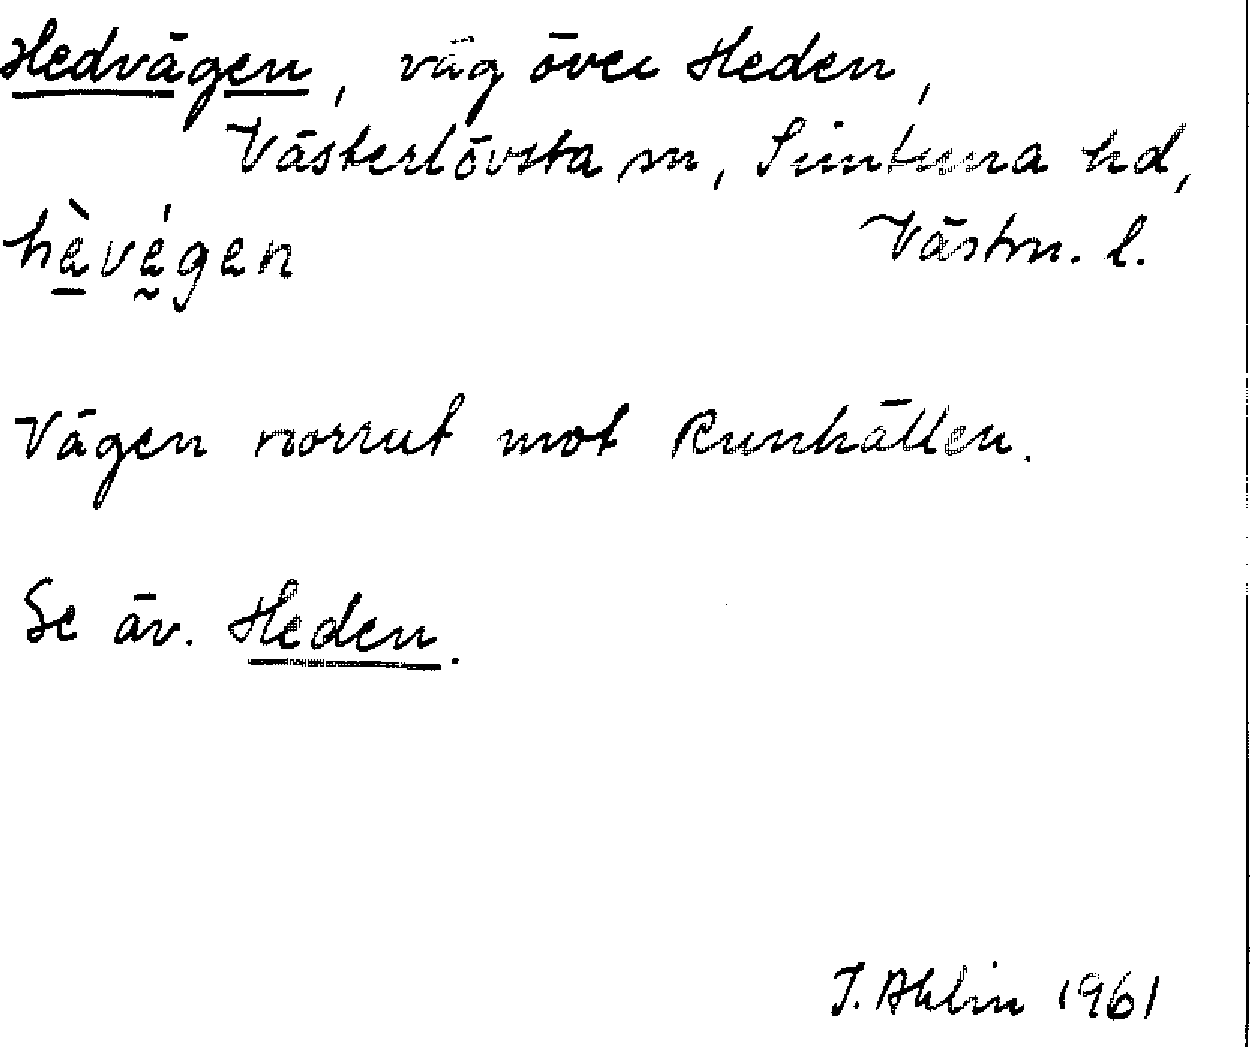 Hedvägen, väg över Heden,
Västerlövsta sn, Simtuna hd,
hèvégen Västm. l.
Vägen norrut mot Runhällen.
Se äv. Heden.
T. Ahlin 1961